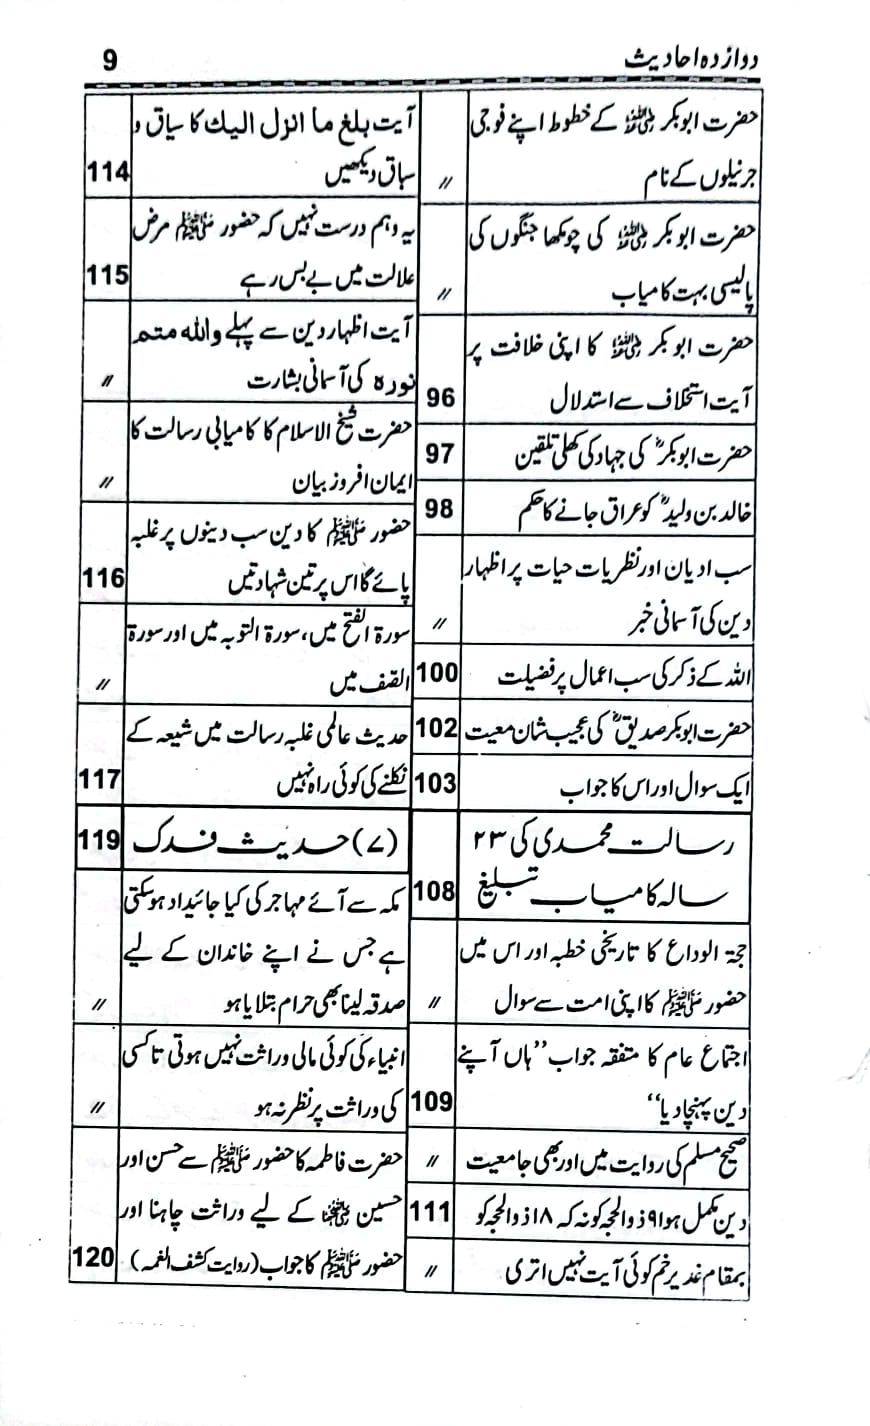 دوازدہ احادیث 9
حضرت ابوبکر رضی اللہ عنہ کے خطوط اپنے فوجی
جرنیلوں کے نام 〃
حضرت ابوبکر رضی اللہ عنہ کی چومکھا جنگوں کی
پالیسی بہت کامیاب 〃
حضرت ابوبکر رضی اللہ عنہ کا اپنی خلافت پر
آیت استخلاف سے استدلال 96
حضرت ابوبکرؓ کی جہاد کی کھلی تلقین 97
خالد بن ولیدؓ کو عراق جانے کا حکم 98
سب ادیان اور نظریات حیات پر اظہار
دین کی آسمانی خبر 〃
اللہ کے ذکر کی سب اعمال پر فضیلت 100
حضرت ابوبکر صدیقؓ کی عجیب شان معیت 102
ایک سوال اور اس کا جواب 103
رسالت محمدی کی ۲۳
سالہ کامیاب تبلیغ 108
حجۃ الوداع کا تاریخی خطبہ اور اس میں
حضور ﷺ کا اپنی امت سے سوال 〃
اجتماع عام کا متفقہ جواب ”ہاں آپنے
دین پہنچا دیا“ 109
صحیح مسلم کی روایت میں اور بھی جامعیت 〃
دین مکمل ہوا ۹ ذوالحجہ کو نہ کہ ۱۸ ذوالحجہ کو 111
بمقام غدیر خم کوئی آیت نہیں اتری 〃
آیت بلغ ما انزل الیك کا سیاق و
سباق دیکھیں 114
یہ وہم درست نہیں کہ حضور ﷺ مرض
علالت میں بے بس رہے 115
آیت اظہار دین سے پہلے واللہ متم
نورہ کی آسمانی بشارت 〃
حضرت شیخ الاسلام کا کامیابی رسالت کا
ایمان افروز بیان 〃
حضور ﷺ کا دین سب دینوں پر غلبہ
پائے گا اس پر تین شہادتیں 116
سورۃ الفتح میں، سورۃ التوبہ میں اور سورۃ
الصّف میں 〃
حدیث عالمی غلبہ رسالت میں شیعہ کے
نکلنے کی کوئی راہ نہیں 117
(۷) حدیث فدک 119
مکہ سے آئے مہاجر کی کیا جائیداد ہو سکتی
ہے جس نے اپنے خاندان کے لیے
صدقہ لینا بھی حرام بتلایا ہو 〃
انبیاء کی کوئی مالی وراثت نہیں ہوتی تا کسی
کی وراثت پر نظر نہ ہو 〃
حضرت فاطمہ کا حضور ﷺ سے حسن اور
حسین رضی اللہ عنہما کے لیے وراثت چاہنا اور
حضور ﷺ کا جواب (روایت کشف الغمہ) 120